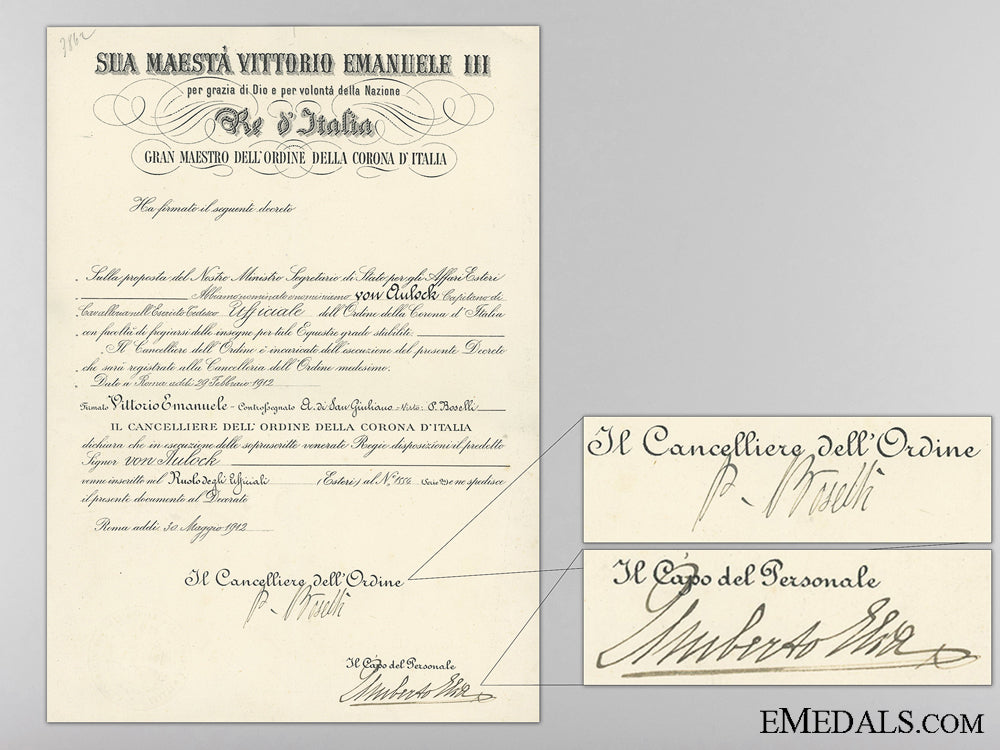 3862
SUA MAESTÀ VITTORIO EMANUELE III
per grazia di Dio e per volontà della Nazione
Re d'Italia
GRAN MAESTRO DELL'ORDINE DELLA CORONA D'ITALIA
Ha firmato il seguente decreto
Sulla proposta del Nostro Ministro Segretario di Stato per gli Affari Esteri
Abbiamo nominato e nominiamo von Aulock Capitano di
Cavalleria nell'Esercito Tedesco Ufficiale dell'Ordine della Corona d'Italia
con facoltà di fregiarsi delle insegne per tale Equestre grado stabilite.
Il Cancelliere dell'Ordine è incaricato dell'esecuzione del presente Decreto
che sarà registrato alla Cancelleria dell'Ordine medesimo.
Dato a Roma addì 29 Febbraio 1912
Firmato Vittorio Emanuele - Controssegnato A. di San Giuliano - Visto: P. Boselli
IL CANCELLIERE DELL'ORDINE DELLA CORONA D'ITALIA
dichiara che in esecuzione delle soprascritte venerate Regie disposizioni il predetto
Signor von Aulock
venne inscritto nel Ruolo degli Ufficiali (Esteri) al N.° 1556 e ne spedisce
il presente documento al Decorato
Roma addì 30 Maggio 1912
Il Cancelliere dell'Ordine
P. Boselli
Il Capo del Personale
Umberto Elia
Il Cancelliere dell'Ordine
P. Boselli
Il Capo del Personale
Umberto Elia
EMEDALS.COM